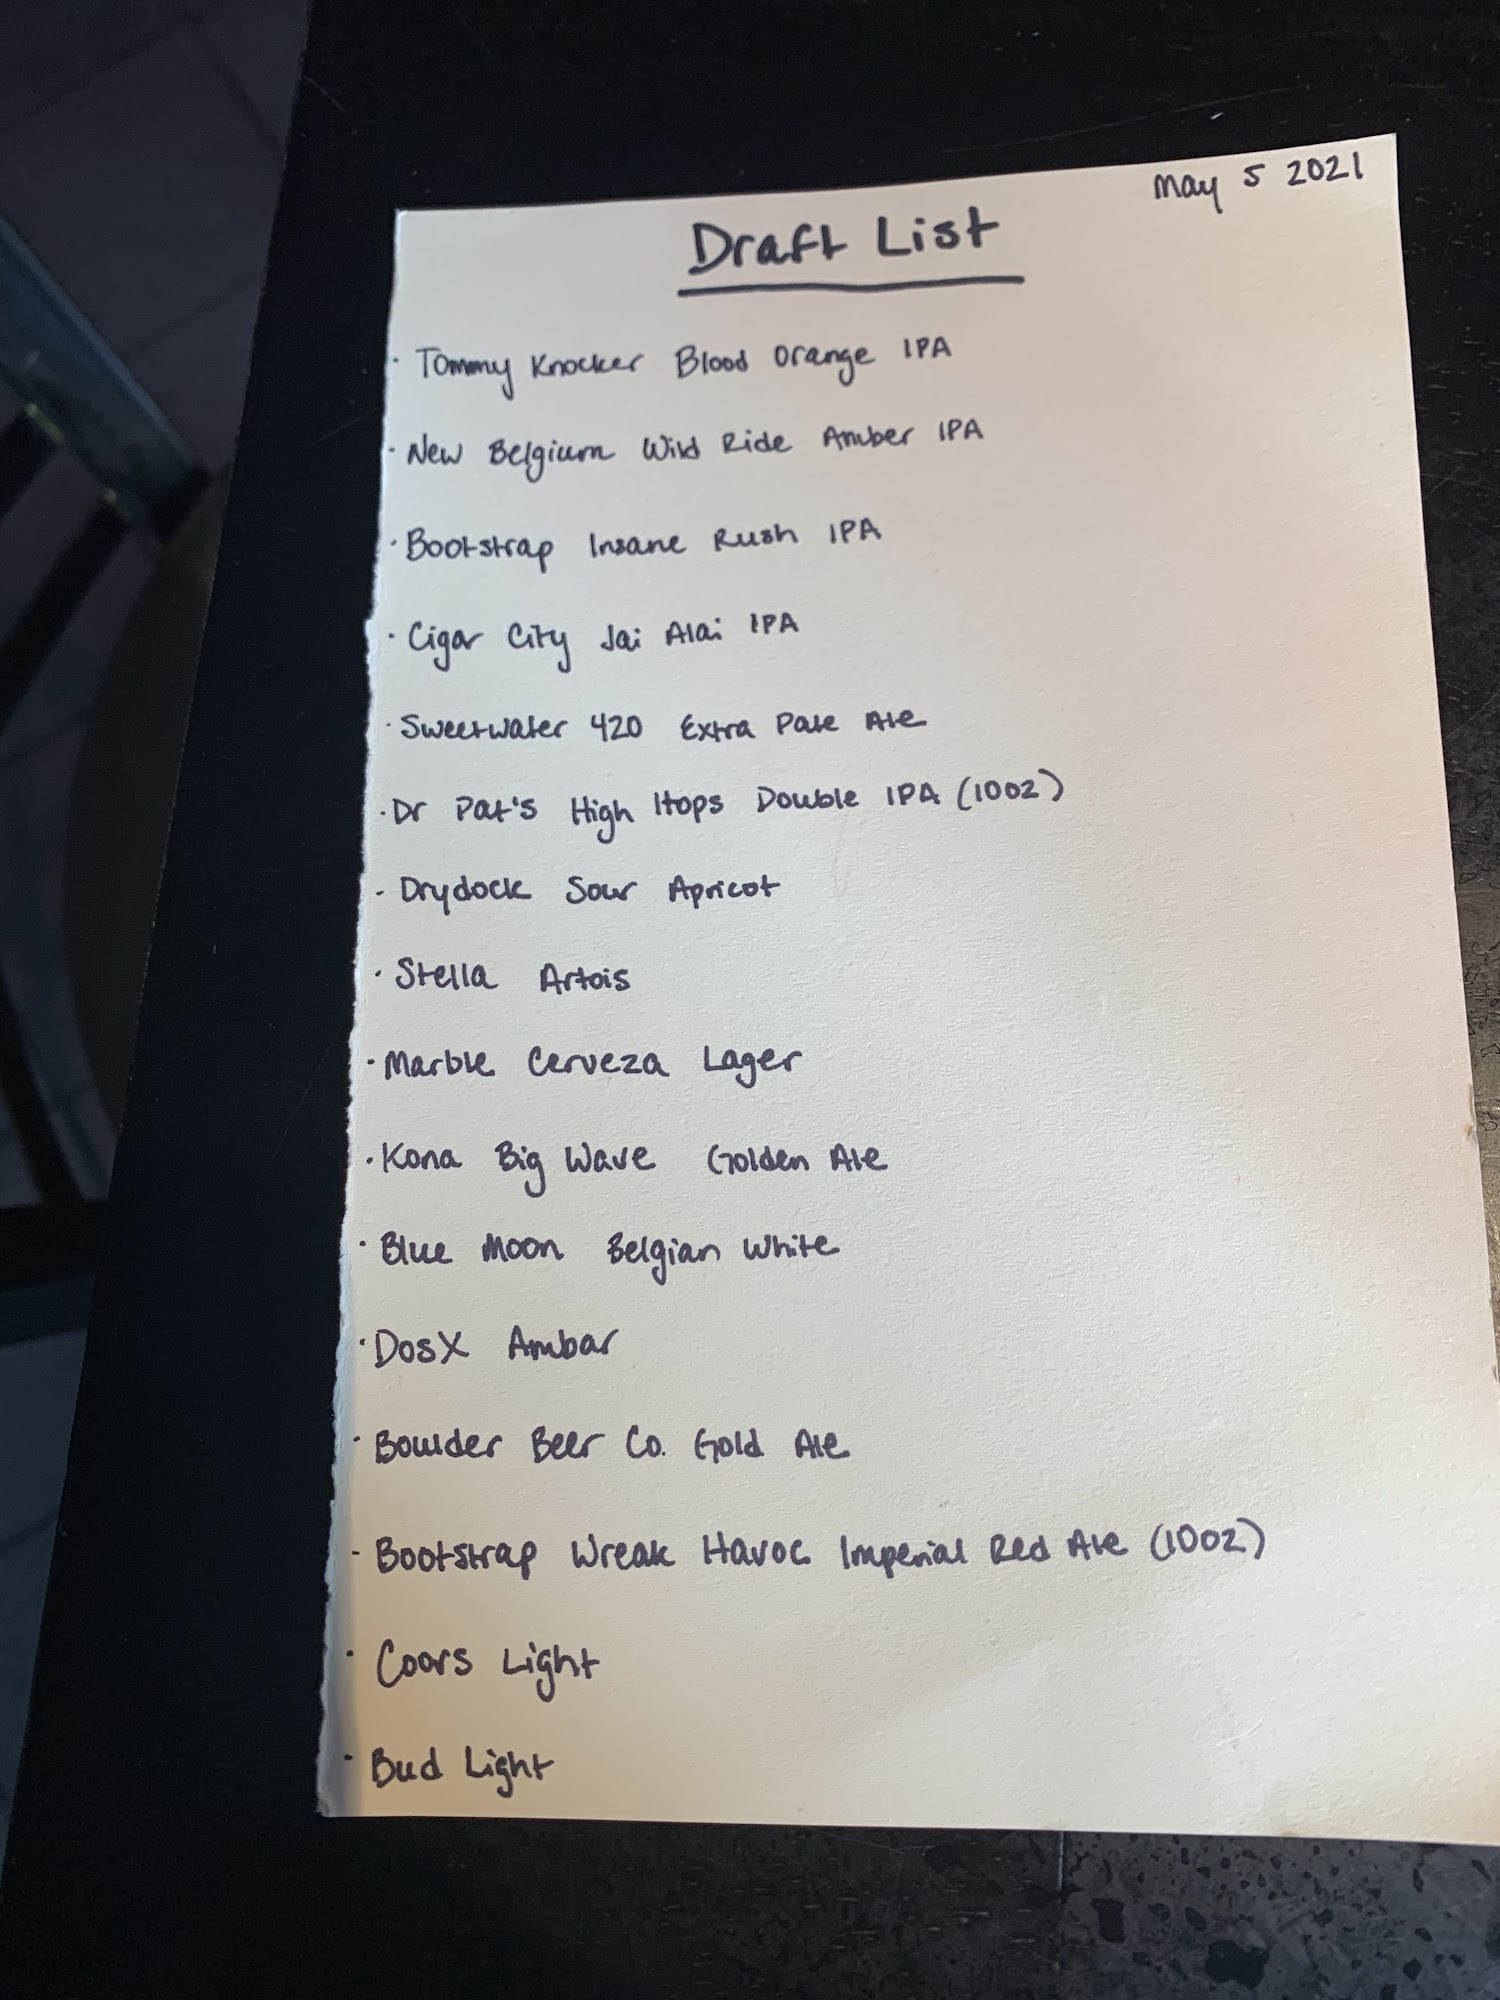 May 5 2021
Draft List
· Tommy Knocker Blood Orange IPA
· New Belgium Wild Ride Amber IPA
· Bootstrap Insane Rush IPA
· Cigar City Jai Alai IPA
· Sweetwater 420 Extra Pale Ale
· Dr Pat's High Hops Double IPA (10oz)
· Drydock Sour Apricot
· Stella Artois
· Marble Cerveza Lager
· Kona Big Wave Golden Ale
· Blue Moon Belgian White
· DosX Ambar
· Boulder Beer Co. Gold Ale
· Bootstrap Wreak Havoc Imperial Red Ale (10oz)
· Coors Light
· Bud Light